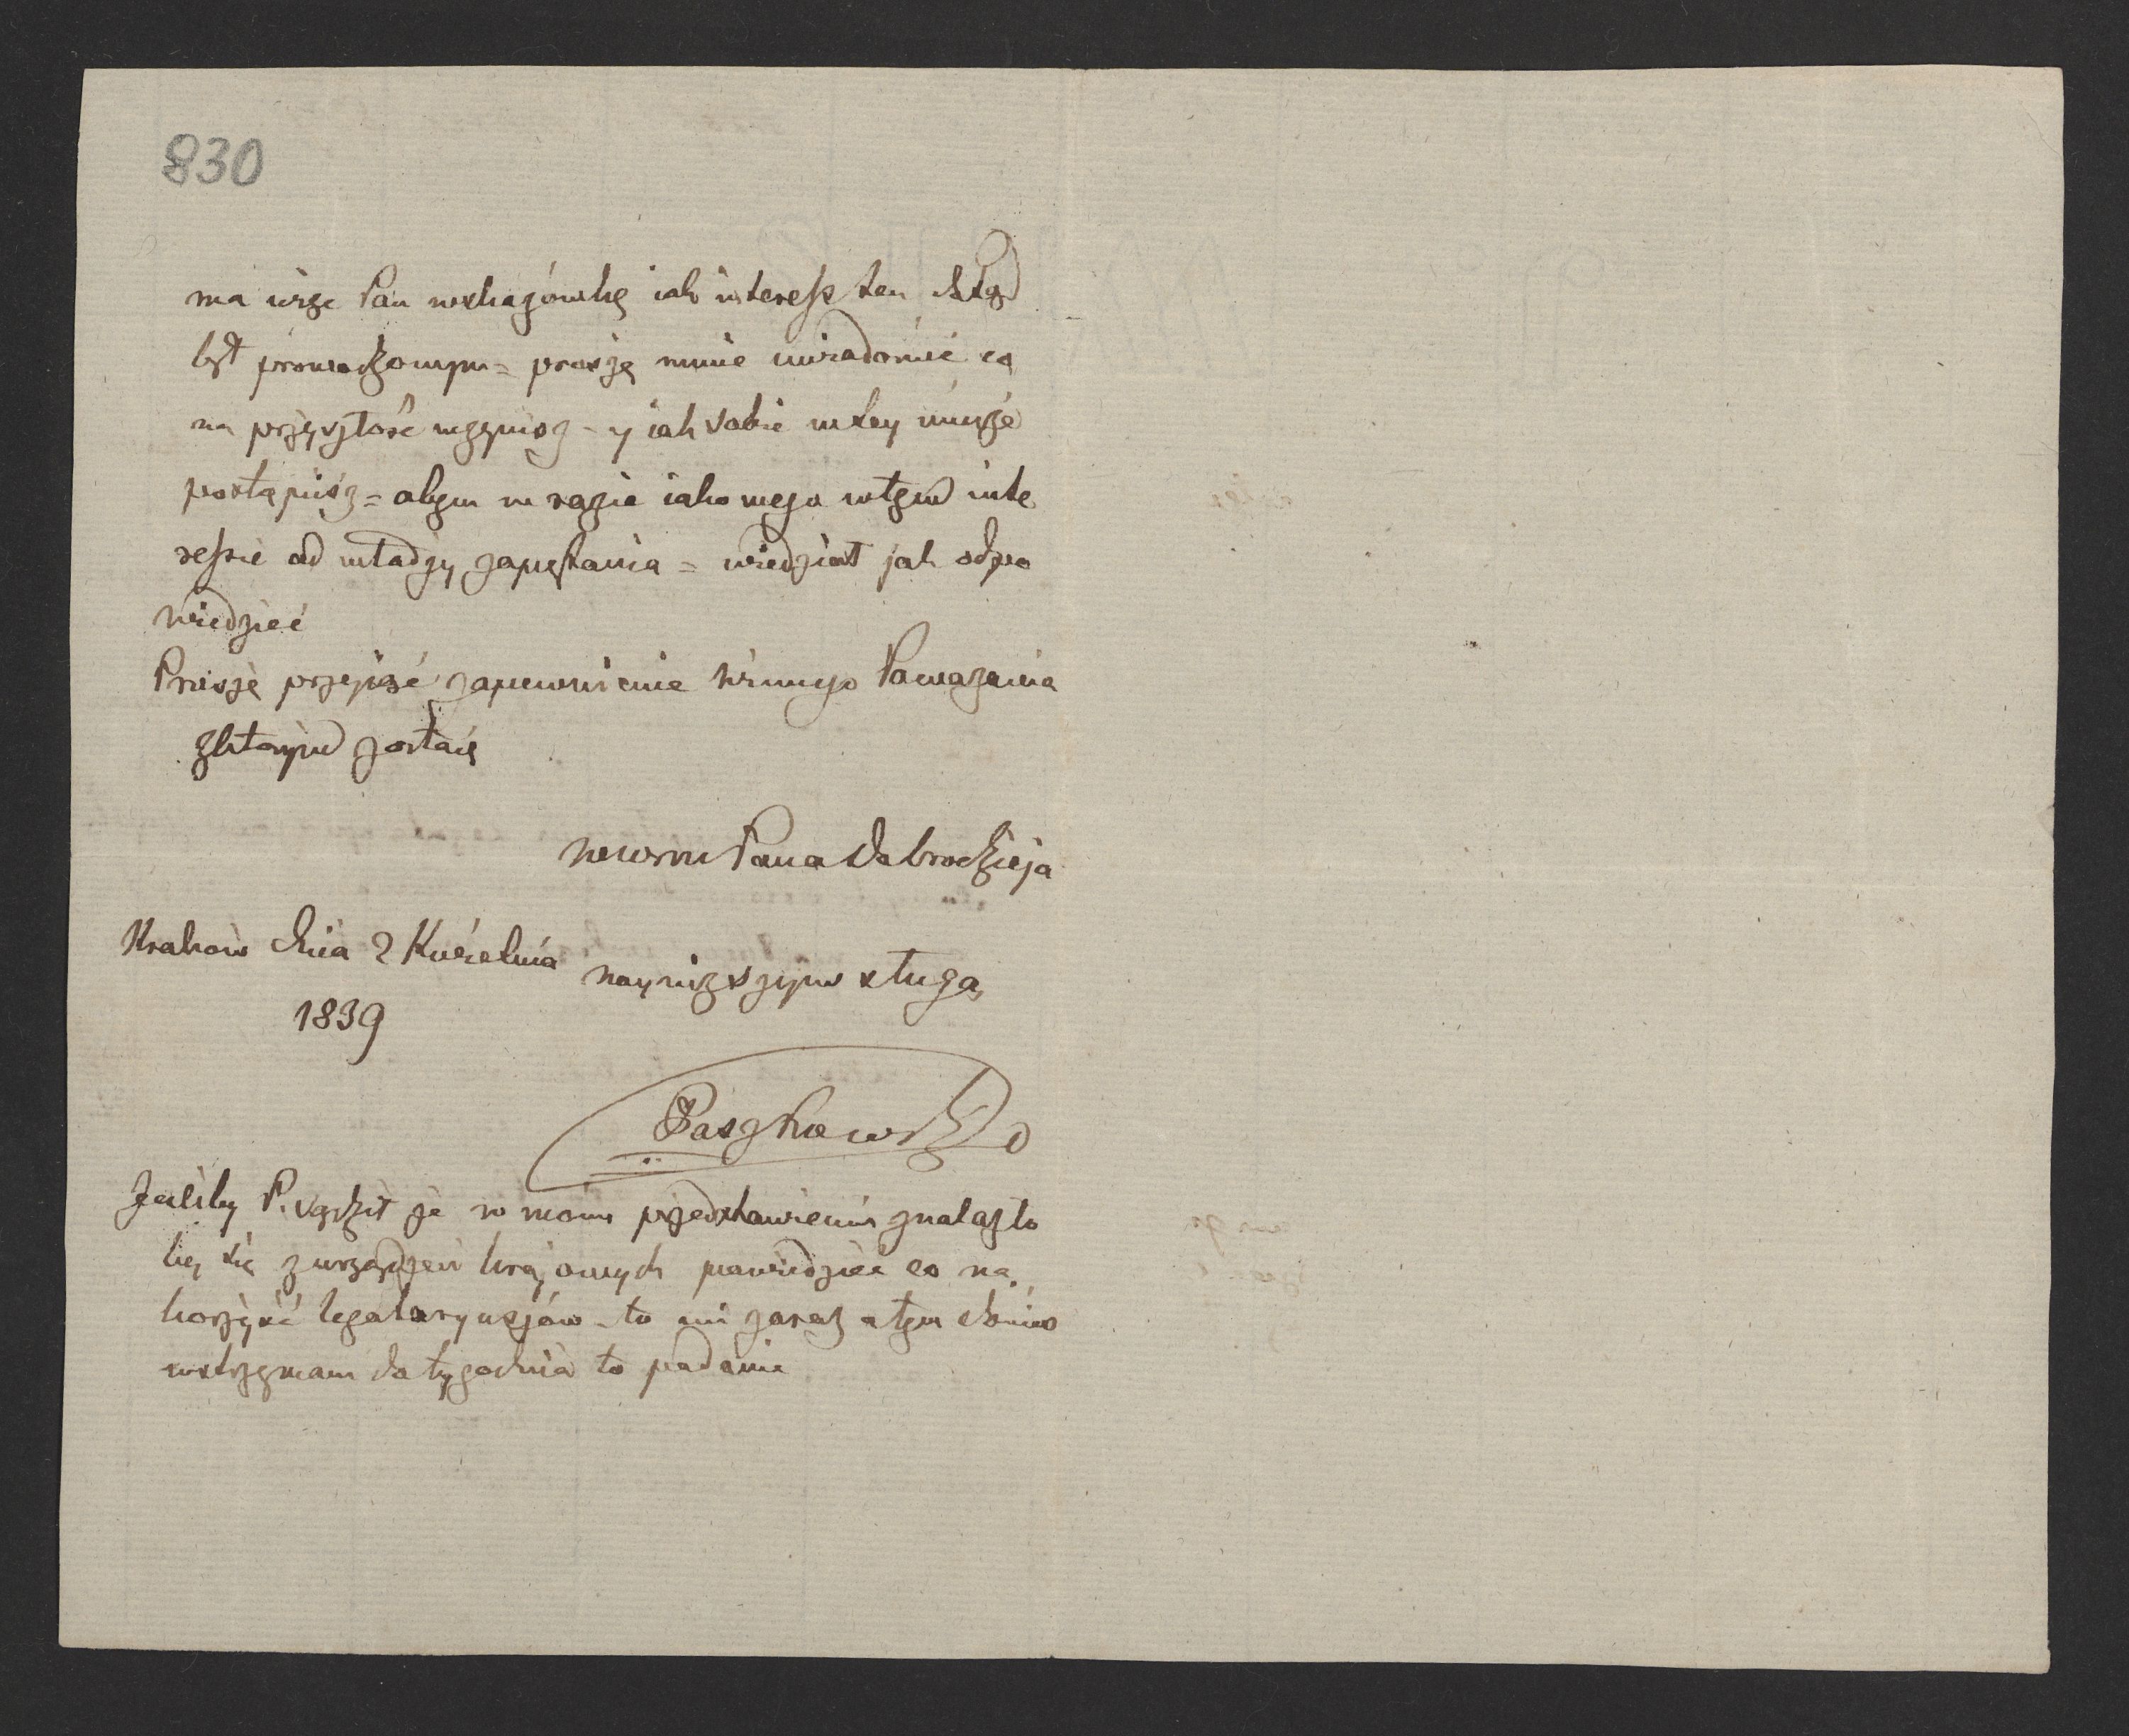 830
ma więc Pan wskazówkę iak interess ten dotąd
był prowadzonym = proszę mnie uwiadomić co
na przyszłość uczynisz - y iak sobie w tey mierze
postąpisz = abym w razie iakowego w tym inte
ressie od władzy zapytania = wiedział jak odpo
wiedzieć
Proszę przyjąć zapewnienie Poważania
z którym zostaię
Pana Dobrodzieja
Kraków dnia 2 Kwietnia
nayniższym sługą
1839
Paszkowski
Jeśliby P. sądził że w moim przedstawieniu znalazło
by się z urządzeń krajowych powiedzieć co na
korzyść legataryuszów - to mi zaraz o tym donieś
wstrzymam do tygodnia to podanie